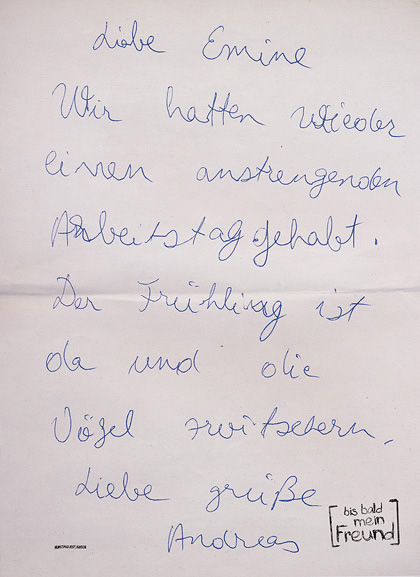 Liebe Emine
Wir hatten wieder
einen anstrengenden
Arbeitstag gehabt.
Der Frühling ist
da und die
Vögel zwitschern,
Liebe grüße
Andreas
[bis bald
mein
Freund]